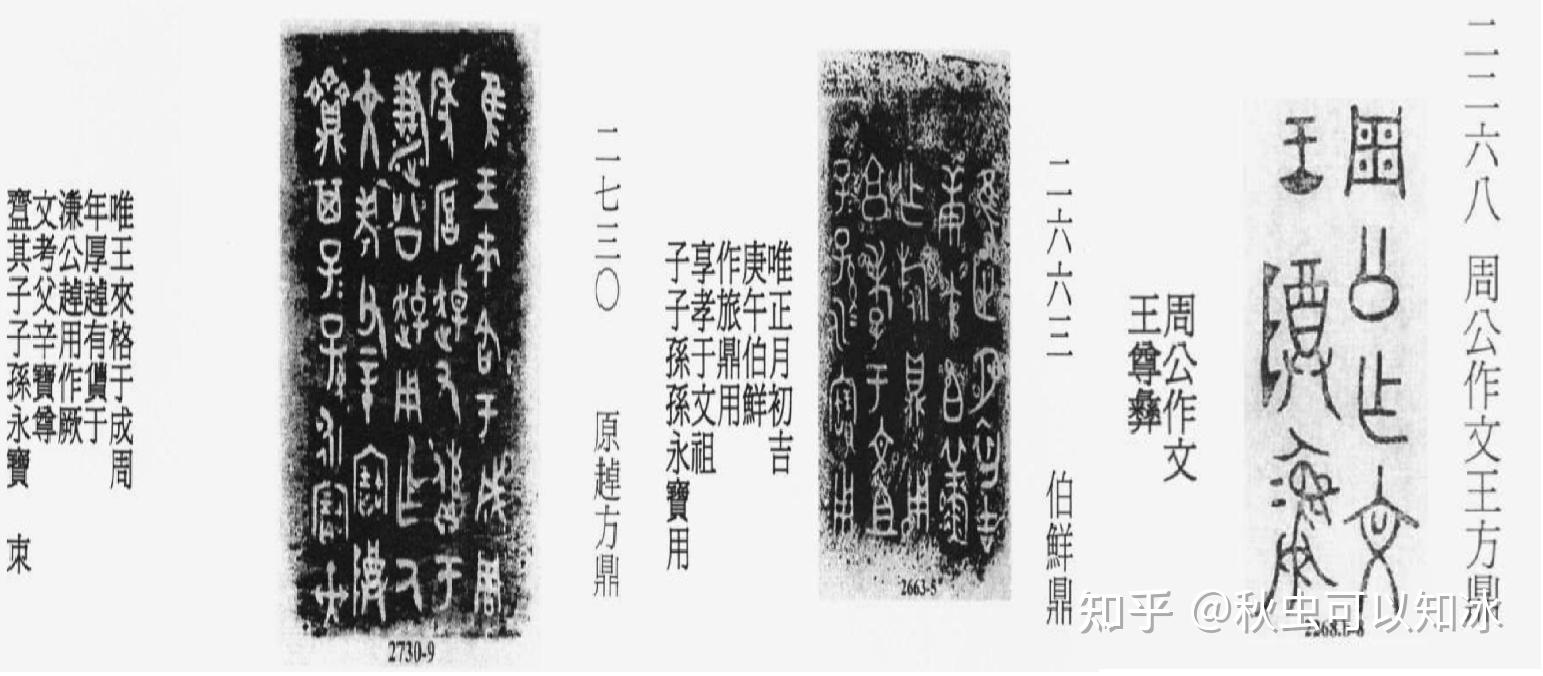 二二六八 周公作文王方鼎
2268.b-8
周公作文
王尊彝
二六六三 伯鮮鼎
2663-5
唯正月初吉
庚午伯鮮
作旅鼎用
享孝于文祖
子子孫孫永寶用
二七三〇 原趠方鼎
2730-9
唯王來格于成周
年厚趠有償于
溓公趠用作厥
文考父辛寶尊
齍其子子孫永寶 朿
知乎 @秋虫可以知冰